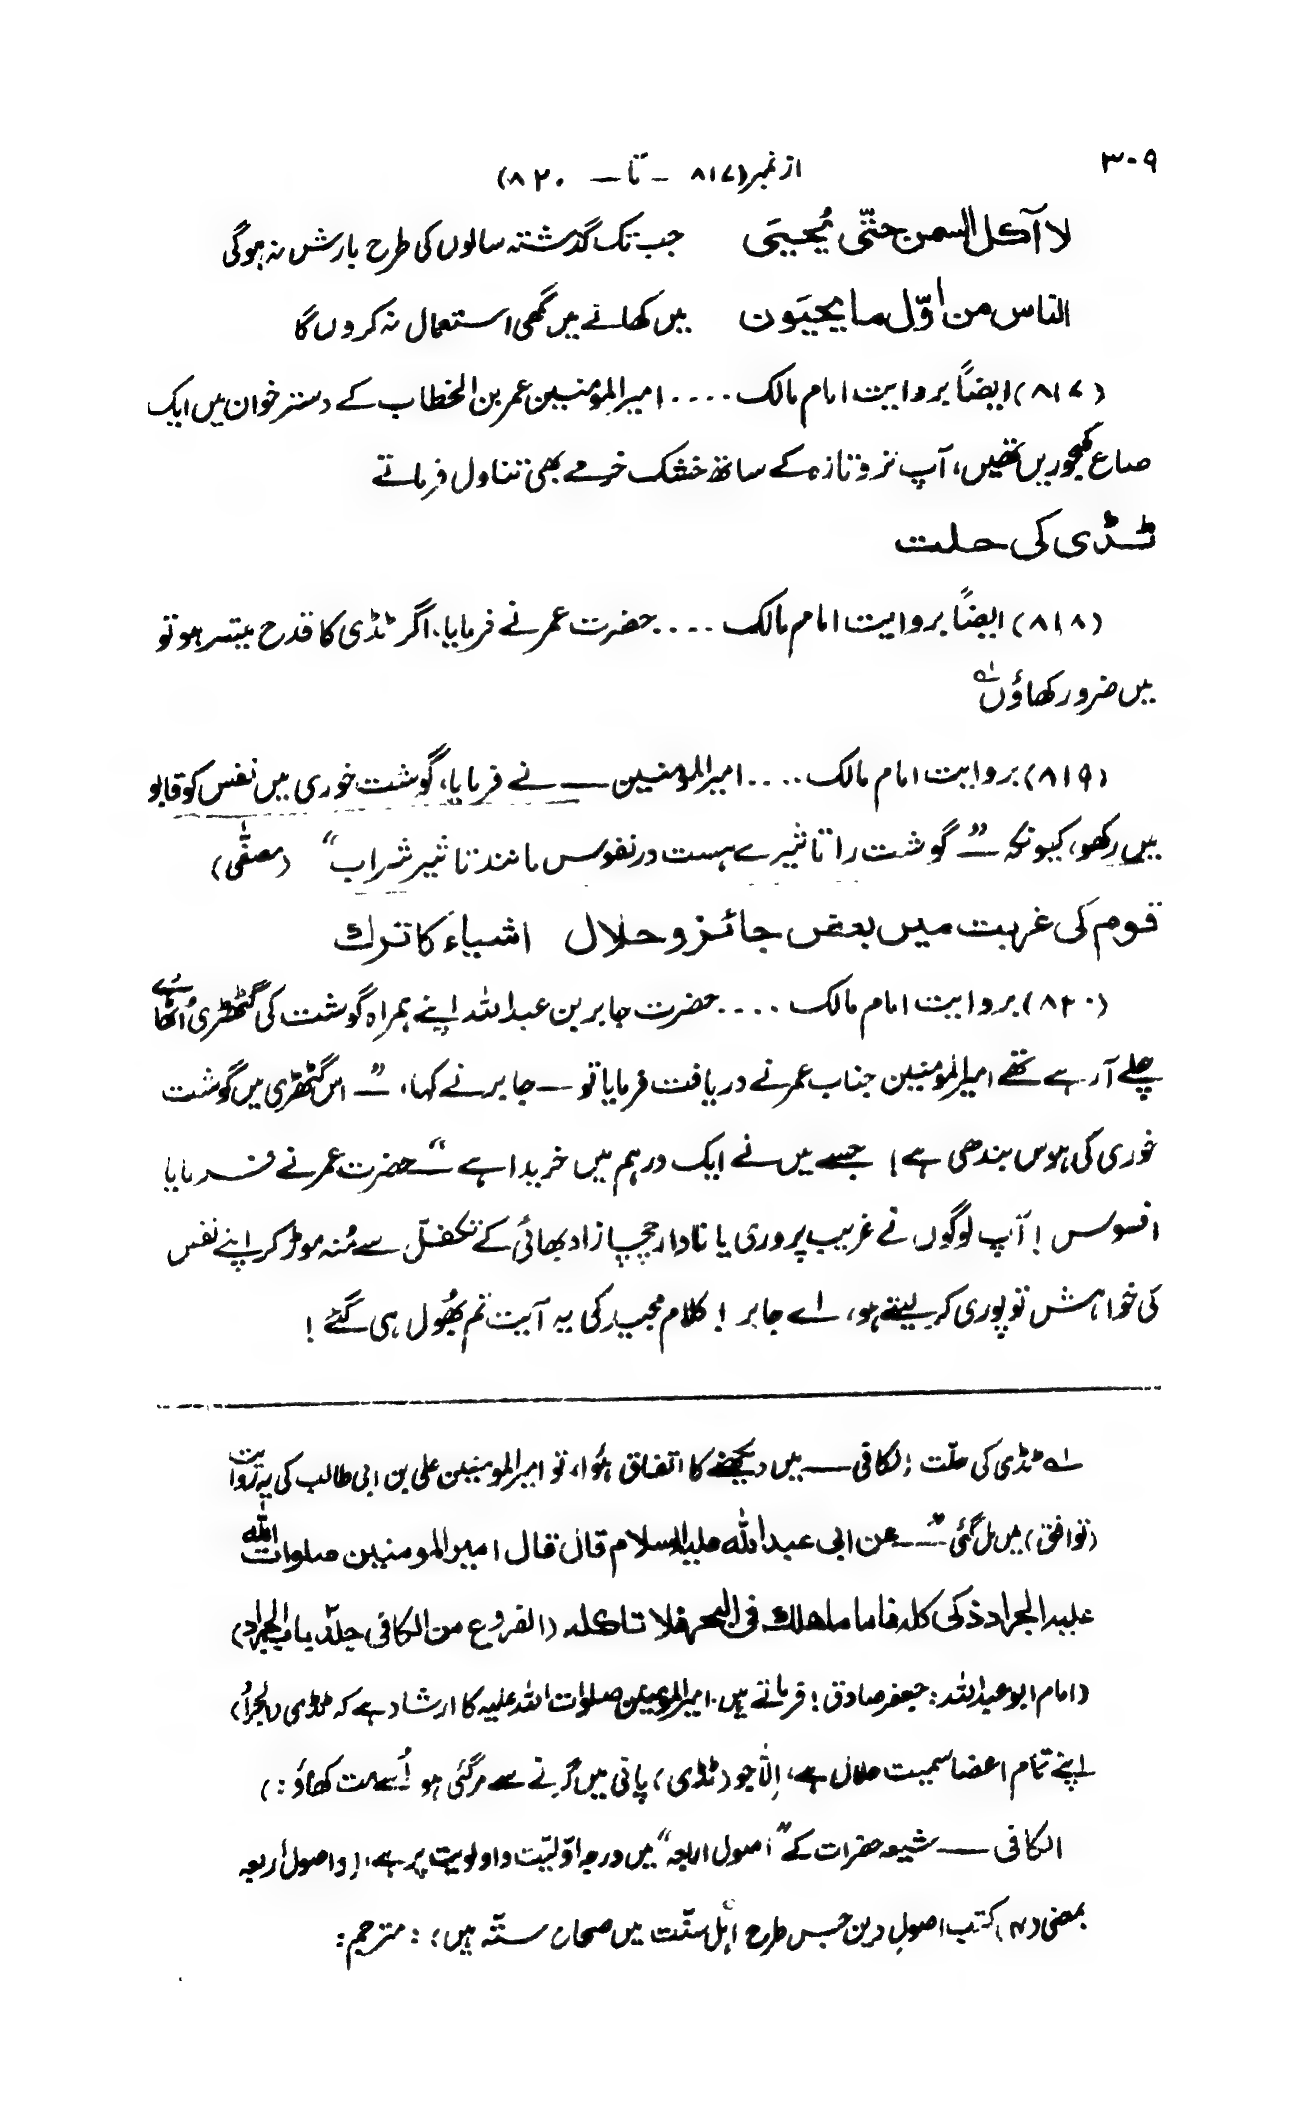 ۳۰۹
از نمبر (۸۱۷ - تا - ۸۲۰)
لا آکل السمن حتّی یُحییَی جب تک گذشتہ سالوں کی طرح بارش نہ ہوگی
الناس من اوّل ما یحیَون میں کھانے میں گھی استعمال نہ کروں گا
(۸۱۷) ایضاً بروایت امام مالک .... امیرالمومنین عمر بن الخطاب کے دسترخوان میں ایک
صاع کھجوریں تھیں، آپ تروتازہ کے ساتھ خشک خرمے بھی تناول فرماتے
ٹڈی کی حلت
(۸۱۸) ایضاً بروایت امام مالک .... حضرت عمر نے فرمایا. اگر ٹڈی کا قدح میسر ہو تو
میں ضرور کھاؤں ؎۱
(۸۱۹) بروایت امام مالک .... امیرالمؤمنین — نے فرمایا، گوشت خوری میں نفس کو قابو
میں رکھو، کیونکہ — ”گوشت را تاثیرے ہست در نفوس مانند تاثیر شراب“ (مصفّٰی)
قوم کی غربت میں بعض جائز و حلال اشیاء کا ترک
(۸۲۰) بروایت امام مالک .... حضرت جابر بن عبداللہ اپنے ہمراہ گوشت کی گٹھڑی اُٹھائے
چلے آرہے تھے امیرالمومنین جناب عمر نے دریافت فرمایا تو — جابر نے کہا، — ” اس گٹھڑی میں گوشت
خوری کی ہوس بندھی ہے! جسے میں نے ایک درہم میں خریدا ہے “ — حضرت عمر نے فرمایا
افسوس ! آپ لوگوں نے غریب پروری یا نادار چچازاد بھائی کے تکفل سے مُنہ موڑ کر اپنے نفس
کی خواہش تو پوری کر لیتے ہو، اے جابر ! کلام مجید کی یہ آیت تم بھُول ہی گئے !
؎۱ ٹڈی کی حلّت : الکافی — میں دیکھنے کا اتفاق ہُوا، تو امیرالمومنین علی بن ابی طالب کی یہ روایت
(توافق) میں مل گئی — ” عن ابی عبداللّٰہ علیہ السلام قال قال امیرالمومنین صلوات اللّٰہ
علیہ الجراد ذکی کلہ فاما ماھلك فی البحر فلا تاکلہ (الفروع من الکافی جلد ۲ باب الجراد)
(امام ابو عبداللہ: جعفر صادق! فرماتے ہیں. امیرالمومنین صلوات اللہ علیہ کا ارشاد ہے کہ ٹڈی (الجراد)
اپنے تمام اعضا سمیت حلال ہے، اِلّا جو (ٹڈی) پانی میں گرنے سے مرگئی ہو اُسے مت کھاؤ : )
الکافی — شیعہ حضرات کے ”اصول اربعہ“ میں درجہ اوّلیّت و اولویت پر ہے، اور اصول اربعہ
بمعنی (۴) کتب اصولِ دین جس طرح اہل سنّت میں صحاح ستّہ ہیں؛ : مترجم :